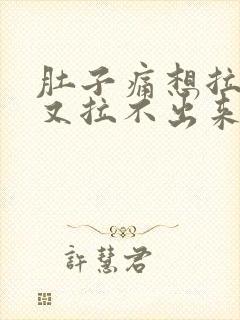 肚子痛想拉
又拉不出来
許慧君